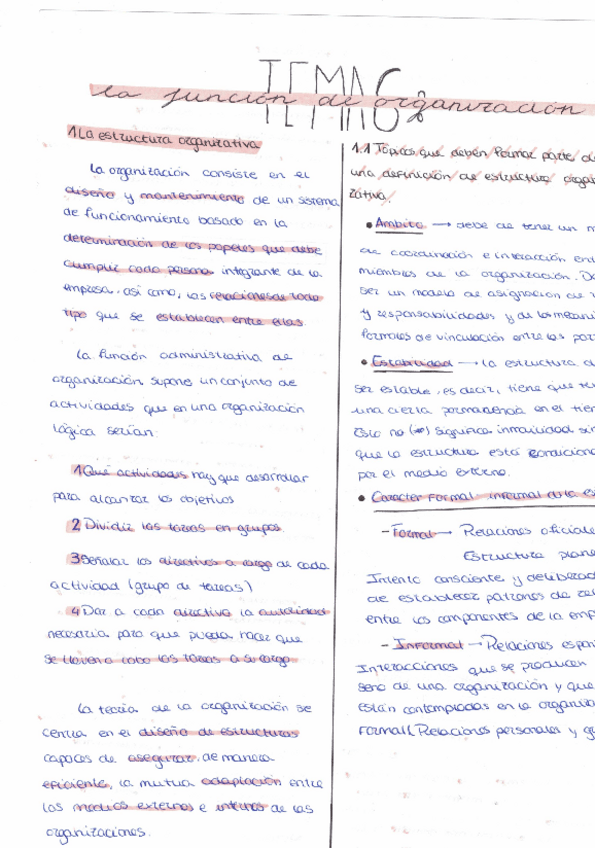 TEMA 6
La función de organización
1 La estructura organizativa
La organización consiste en el
diseño y mantenimiento de un sistema
de funcionamiento basado en la
determinación de los papeles que debe
cumplir cada persona integrante de la
empresa, así como, las relaciones de todo
tipo que se establecen entre ellas.
La función administrativa de
organización supone un conjunto de
actividades que en una organización
lógica serían:
1 Qué actividades hay que desarrollar
para alcanzar los objetivos
2 Dividir las tareas en grupos
3 Señalar los directivos a cargo de cada
actividad (grupo de tareas)
4 Dar a cada directivo la autoridad
necesaria para que pueda hacer que
se lleven a cabo las tareas a su cargo
La teoría de la organización se
centra en el diseño de estructuras
capaces de asegurar, de manera
eficiente, la mutua adaptación entre
los medios externos e internos de las
organizaciones.
1.1 Topicos que deben formar parte d
una definición de estructura organi
zativa.
• Ambito → debe de tener un m
de coordinación e interacción en
miembros de la organización. D
ser un modelo de asignación de
y responsabilidades y de los mecani
formales de vinculación entre las par
• Estabilidad → la estructura d
ser estable, es decir, tiene que t
una cierta permanencia en el tie
Esto no (➡) significa inmovilidad sin
que la estructura está condicion
por el medio externo.
• Caracter formal informal de la es
- Formal → Relaciones oficiale
Estructura plane
Intento consciente y deliberad
de establecer patrones de re
entre los componentes de la emp
- Informal → Relaciones espon
Interacciones que se producen
seno de una organización y que
están contempladas en la organiza
formal. Relaciones personales y g